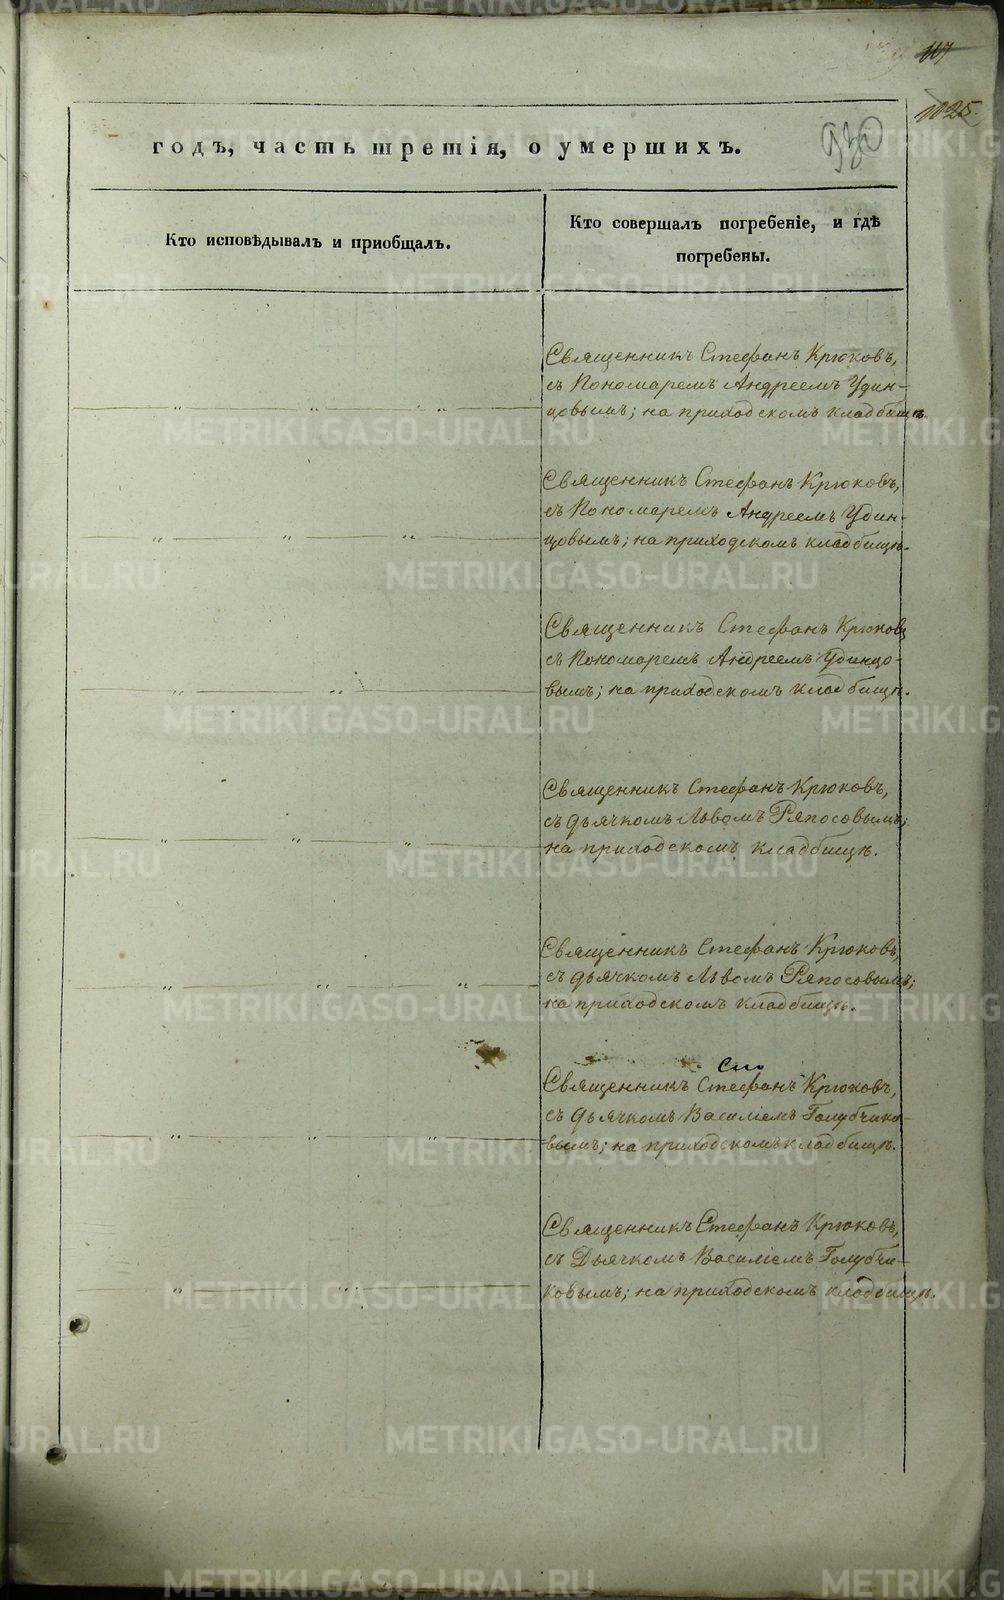 117
1025
930
годъ, часть третія, о умершихъ.
Кто исповѣдывалъ и приобщалъ.
Кто совершалъ погребеніе, и гдѣ
погребены.
Священникъ Стефанъ Крюковъ,
съ Пономаремъ Андреемъ Удин-
цовымъ; на приходскомъ кладбищѣ.
Священникъ Стефанъ Крюковъ,
съ Пономаремъ Андреемъ Удин-
цовымъ; на приходскомъ кладбищѣ.
Священникъ Стефанъ Крюковъ
съ Пономаремъ Андреемъ Удинцо-
вымъ; на приходскомъ кладбищѣ.
Священникъ Стефанъ Крюковъ,
съ дьячкомъ Львомъ Ряпосовымъ;
на приходскомъ кладбищѣ.
Священникъ Стефанъ Крюковъ,
съ дьячкомъ Львомъ Ряпосовымъ;
на приходскомъ кладбищѣ.
Священникъ Стефанъ Крюковъ,
съ дьячкомъ Василіемъ Голубчико-
вымъ; на приходскомъ кладбищѣ.
Священникъ Стефанъ Крюковъ,
съ Дьячкомъ Василіемъ Голубчи-
ковымъ; на приходскомъ кладбищѣ.
METRIKI.GASO-URAL.RU